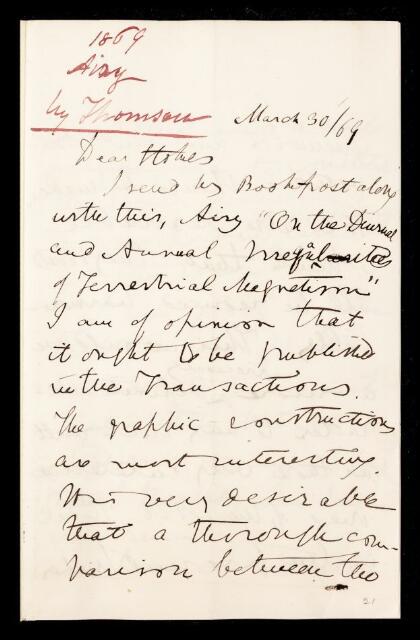 1869
Airy
by Thomson
March 30/69
Dear Stokes
I send by Book-post along
with this, Airy "On the Diurnal
and Annual Irregularities
of Terrestrial Magnetism"
I am of opinion that
it ought to be published
in the Transactions.
The graphic constructions
are most interesting.
It is very desirable
that a thorough com-
parison between the
21